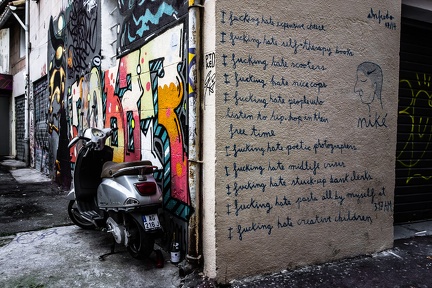 I fucking hate expensive cheese
I fucking hate self-therapy books
I fucking hate scooters
I fucking hate nice cops
I fucking hate people who
listen to hip-hop in their
free time
I fucking hate poetic photographers
I fucking hate midlife crisis
I fucking hate stuck-up bank clerks
I fucking hate pasta all by myself at
I fucking hate creative children
niké